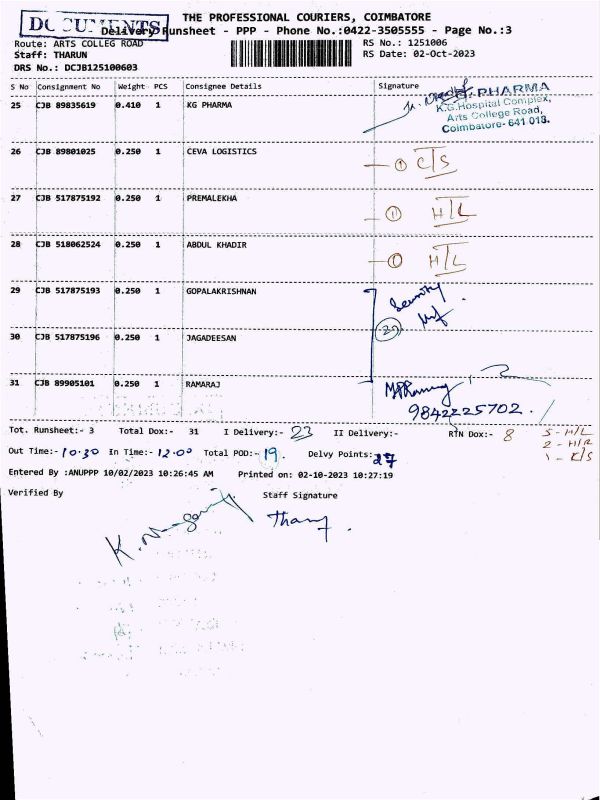 DOCUMENTS
THE PROFESSIONAL COURIERS, COIMBATORE
Delivery Runsheet - PPP - Phone No.:0422-3505555 - Page No.:3
Route: ARTS COLLEG ROAD RS No.: 1251006
Staff: THARUN RS Date: 02-Oct-2023
DRS No.: DCJB125100603
S No Consignment No Weight PCS Consignee Details Signature
25 CJB 89835619 0.410 1 KG PHARMA
PHARMA
K.G.Hospital Complex,
Arts College Road,
Coimbatore- 641 018.
26 CJB 89801025 0.250 1 CEVA LOGISTICS — ① C/S
27 CJB 517875192 0.250 1 PREMALEKHA — ① H/L
28 CJB 518062524 0.250 1 ABDUL KHADIR — ① H/L
29 CJB 517875193 0.250 1 GOPALAKRISHNAN Security
30 CJB 517875196 0.250 1 JAGADEESAN
31 CJB 89905101 0.250 1 RAMARAJ
9842225702.
Tot. Runsheet:- 3 Total Dox:- 31 I Delivery:- 23 II Delivery:- RTN Dox:- 8 5 - H/L
2 - H/R
1 - C/S
Out Time:- 10.30 In Time:- 12.00 Total POD:- 19. Delvy Points: 27
Entered By :ANUPPP 10/02/2023 10:26:45 AM Printed on: 02-10-2023 10:27:19
Verified By Staff Signature